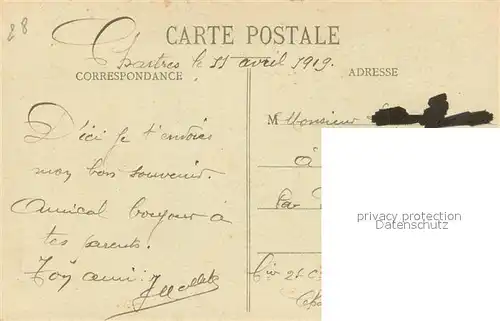 88
CARTE POSTALE
Chartres le 11 avril 1919.
CORRESPONDANCE
ADRESSE
D'ici je t'envoie
mon bon souvenir.
Amical bonjour à
tes parents.
Ton ami
M Monsieur
à
Par
privacy protection
Datenschutz